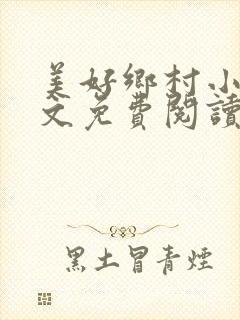 美好鄉村小
文免費閱讀
黑土冒青煙